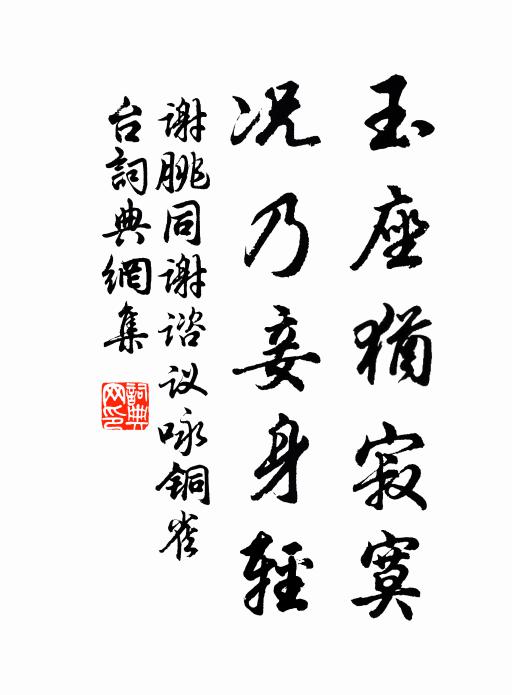 玉座猶寂寞
况乃妾身輕
谢朓同谢谘议咏铜雀
台詞典網集
詞典網印